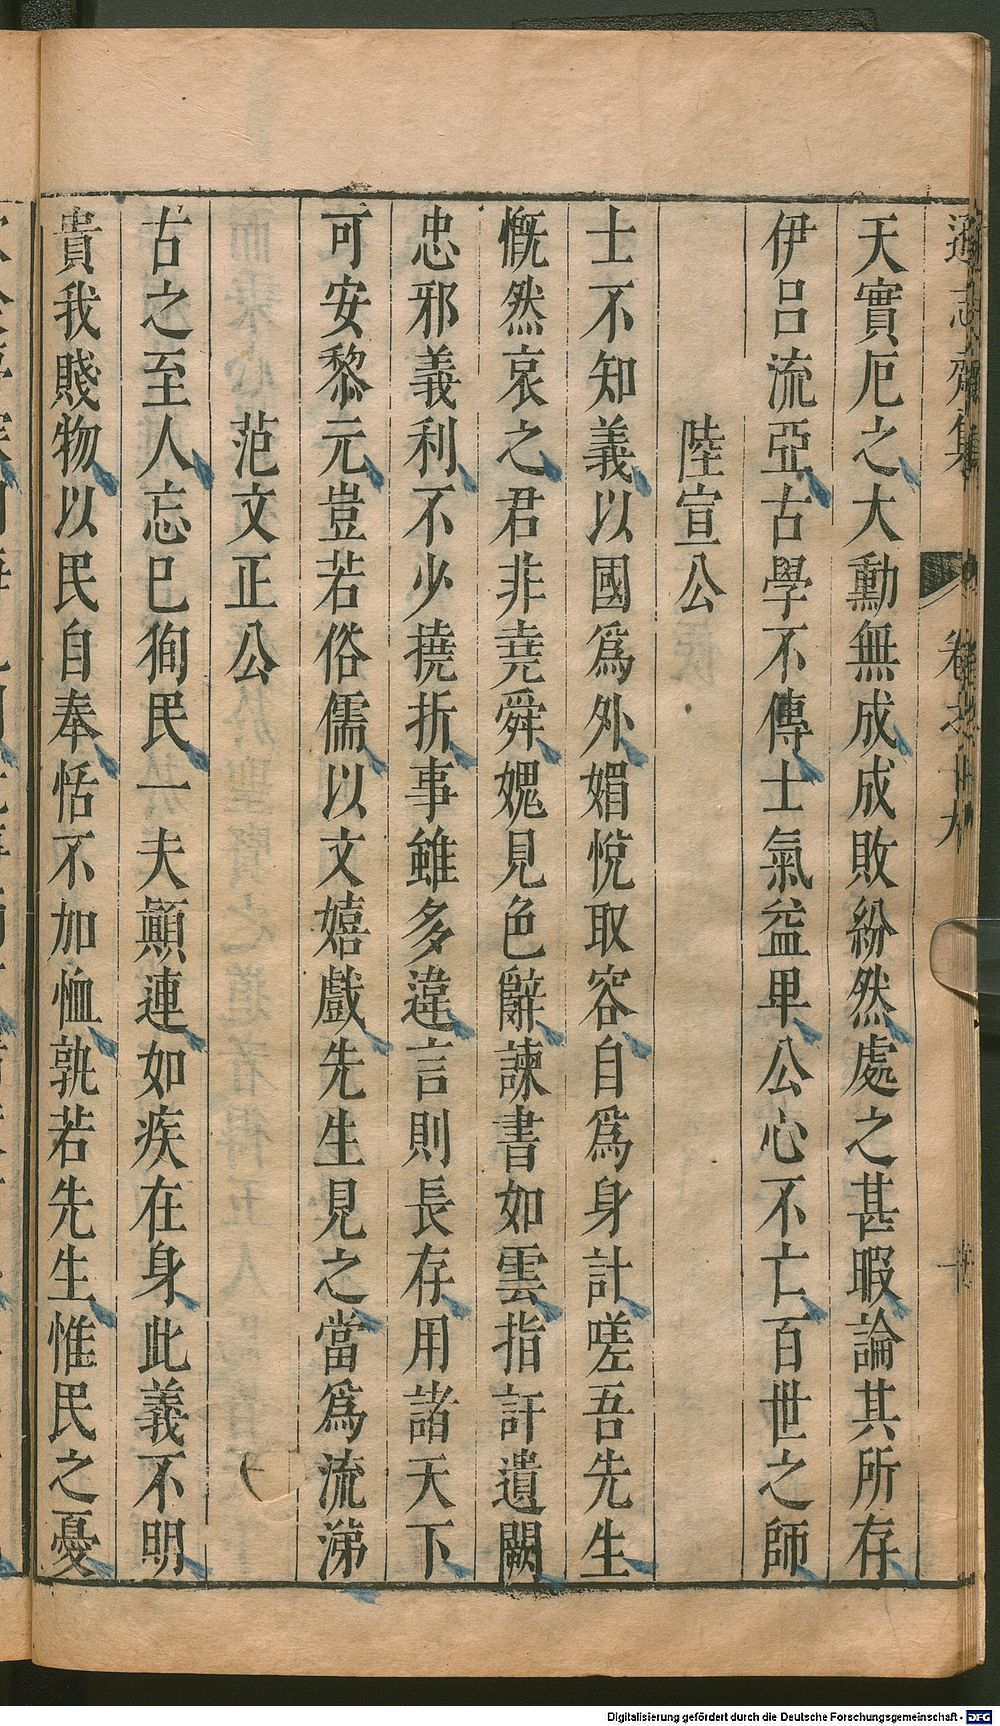 遜志齋集 卷之十九
天實厄之大勳無成成敗紛然處之甚暇論其所存
伊呂流亞古學不傳士氣益卑公心不亡百世之師
陸宣公
士不知義以國爲外媚悅取容自爲身計嗟吾先生
慨然哀之君非堯舜媿見色辭諫書如雲指訐遺闕
忠邪義利不少撓折事雖多違言則長存用諸天下
可安黎元豈若俗儒以文嬉戲先生見之當爲流涕
范文正公
古之至人忘已徇民一夫顚連如疾在身此義不明
貴我賤物以民自奉恬不加恤孰若先生惟民之憂
Digitalisierung gefördert durch die Deutsche Forschungsgemeinschaft - DFG